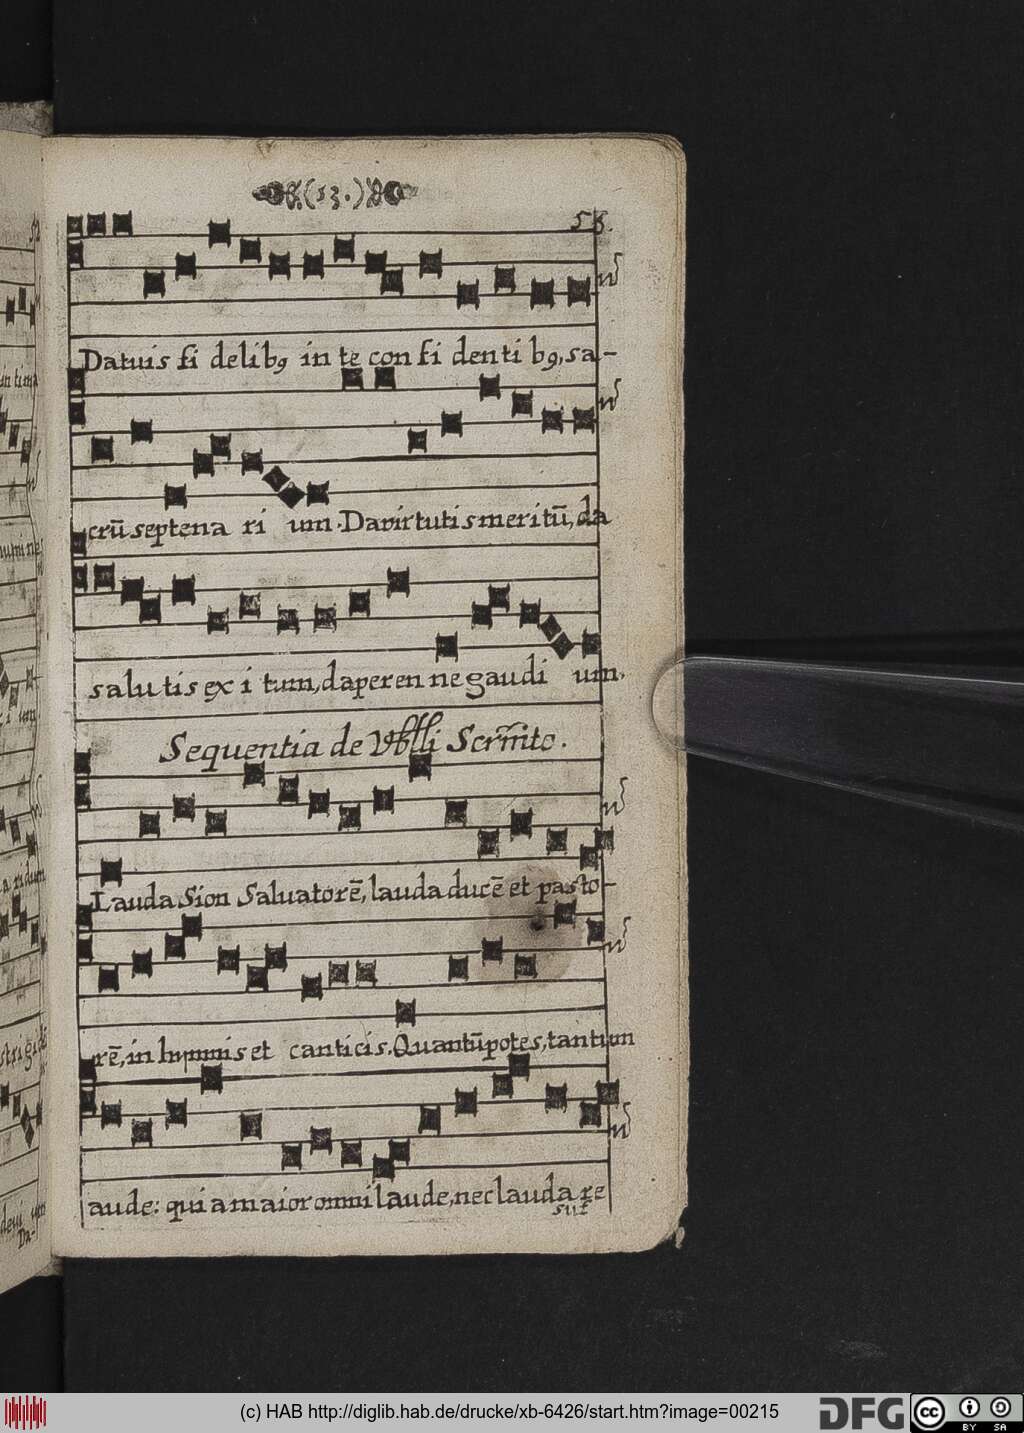 (53.)
58.
Datuis fi delibꝯ in te con fi denti bꝯ, sa-
crū septena ri um. Da virtutis meritū, da
salutis ex i tum, da peren ne gaudi um.
Sequentia de
Lauda Sion Saluatorē, lauda ducē et pasto-
rē, in hymnis et canticis. Quantū potes, tantum
aude: quia maior omni laude, nec lauda re
suf
(c) HAB http://diglib.hab.de/drucke/xb-6426/start.htm?image=00215
DFG
cc
BY SA